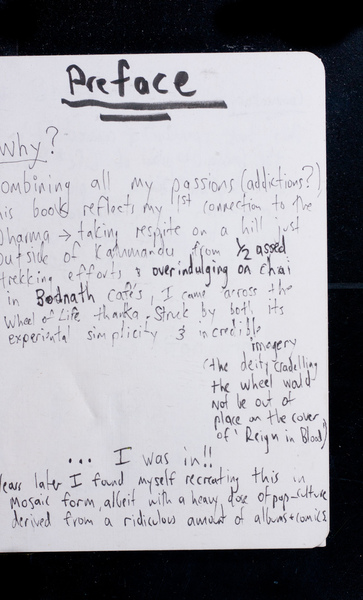 Preface
Why?
ombining all my passions (addictions?)
his book reflects my 1st connection to the
Dharma → taking respite on a hill just
outside of Kathmandu from 1/2 assed
trekking efforts & overindulging on chai
in Bodnath cafés, I came across the
Wheel of Life thanka. Struck by both its
experiental simplicity & incredible
imagery
(the deity cradelling
the wheel would
not be out of
place on the cover
of 'Reign in Blood)
... I was in!!
Years later I found myself recreating this in
Mosaic form, albeit with a heavy dose of pop-culture
derived from a ridiculous amount of albums + comics